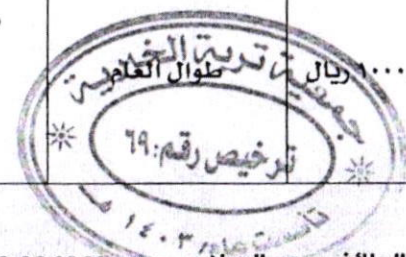 ١٠٠٠ ريال
طوال العام
جمعية تربة الخيرية
ترخيص رقم: ٦٩
تأسست عام ١٤٠٣ هـ